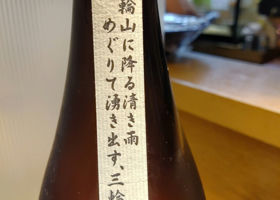 輪山に降る清き雨
めぐりて湧き出す、三輪